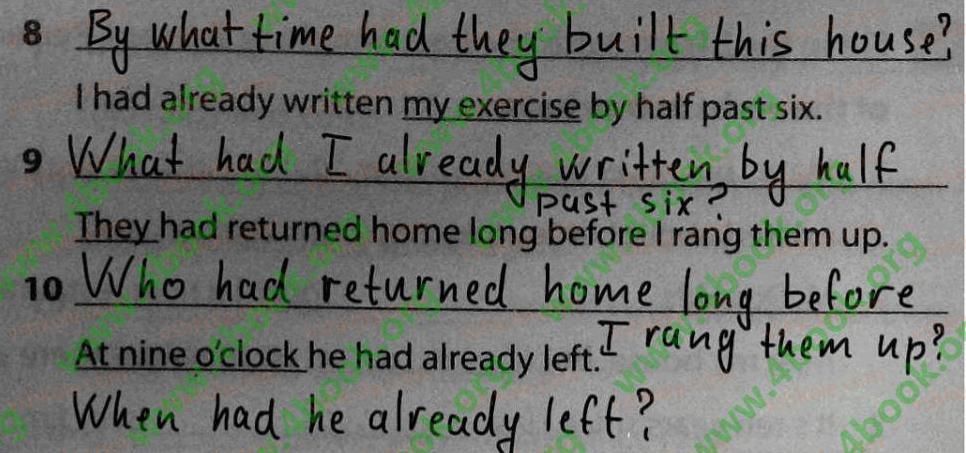 8 By what time had they built this house?
I had already written my exercise by half past six.
9 What had I already written by half
past six?
They had returned home long before I rang them up.
10 Who had returned home long before
I rang them up?
At nine o'clock he had already left.
When had he already left?
www.4book.org